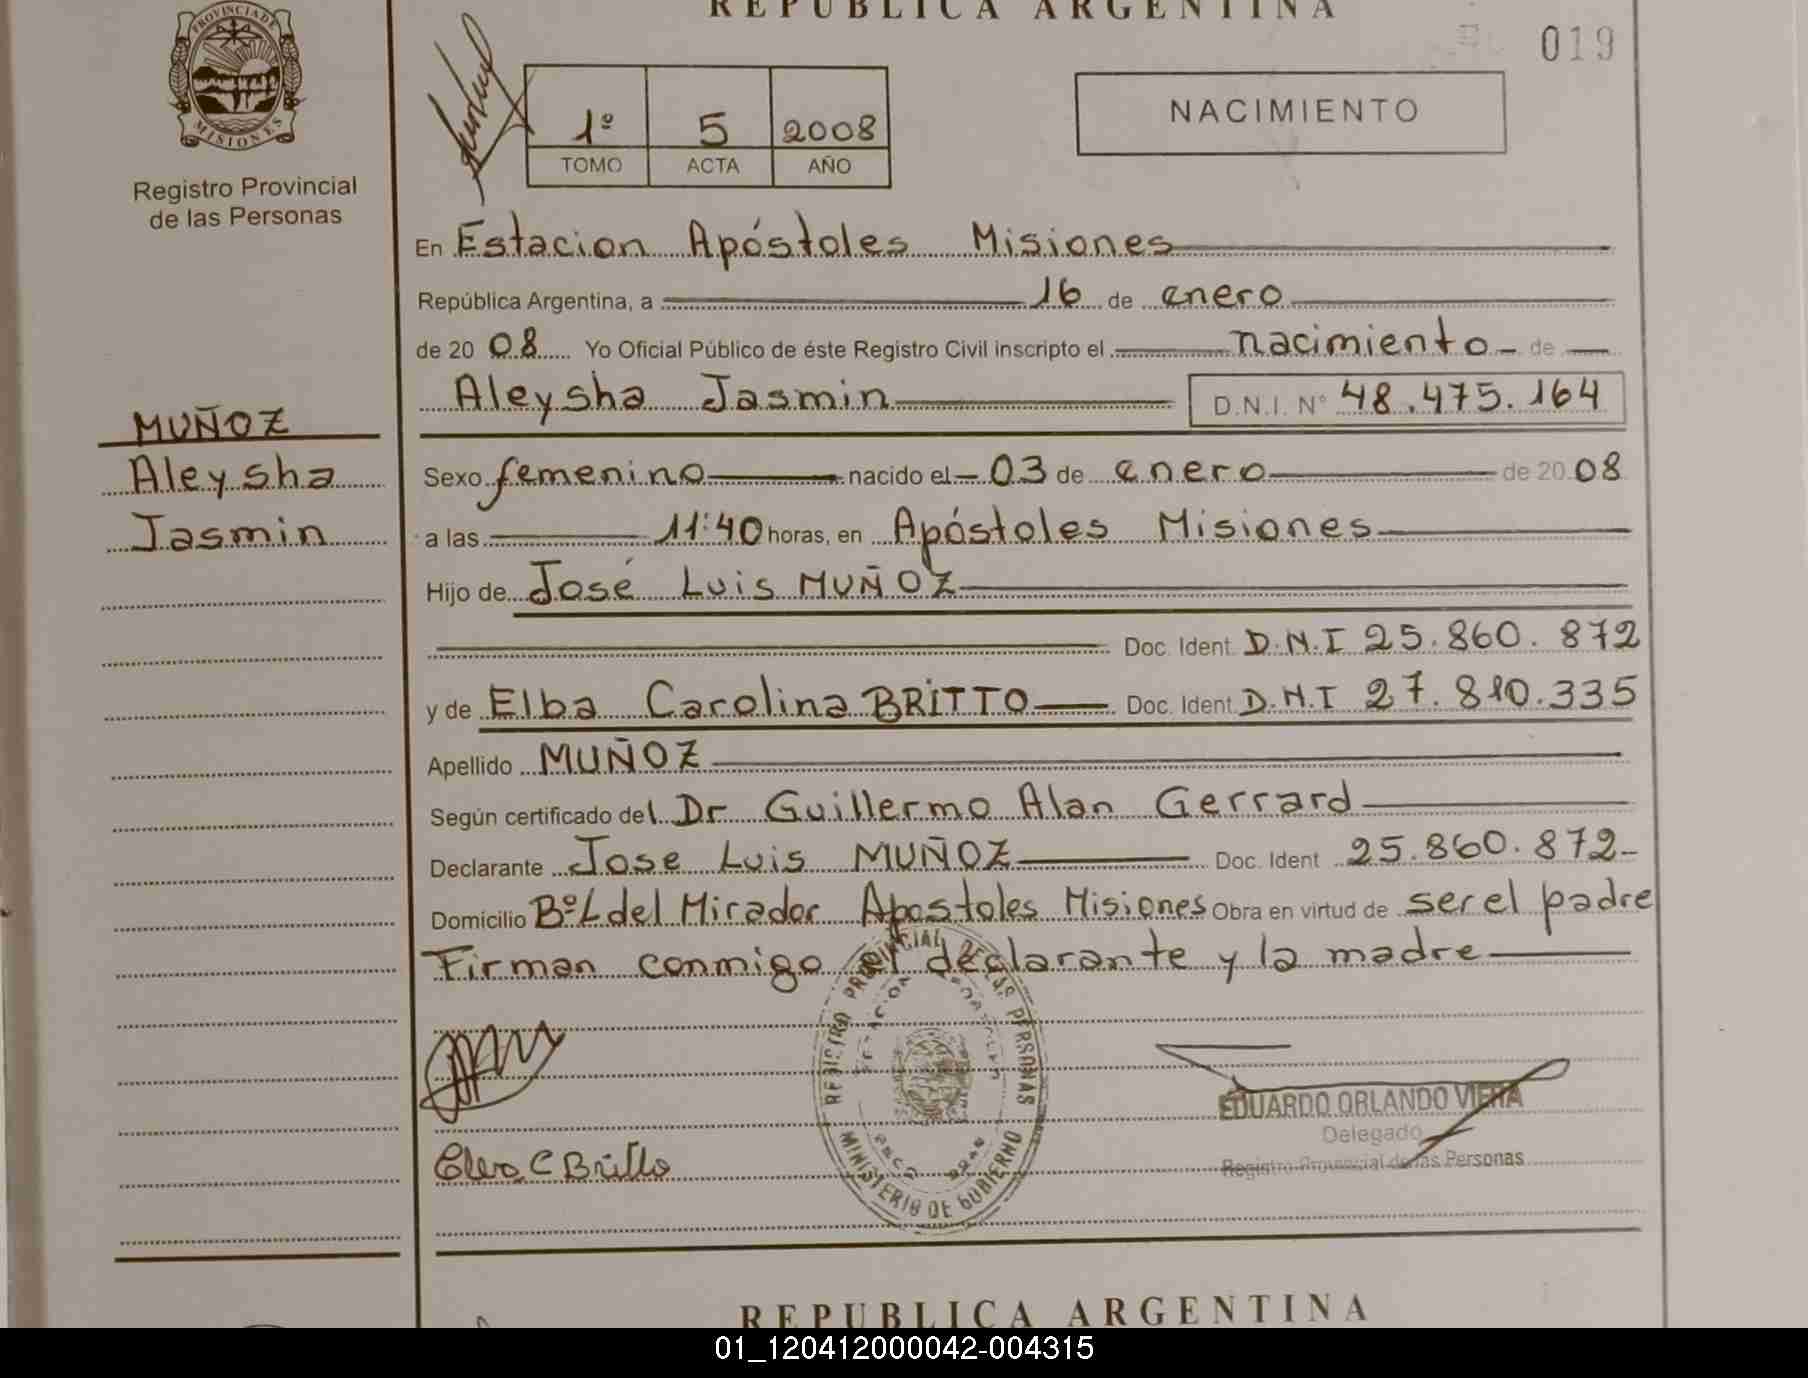 REPUBLICA ARGENTINA
019
PROVINCIA DE
MISIONES
Registro Provincial
de las Personas
1º 5 2008
TOMO ACTA AÑO
NACIMIENTO
En Estacion Apóstoles Misiones
República Argentina, a 16 de enero
de 20 08 Yo Oficial Público de éste Registro Civil inscripto el nacimiento de
Aleysha Jasmin D.N.I. Nº 48.475.164
MUÑOZ
Aleysha
Jasmin
Sexo femenino nacido el 03 de enero de 20 08
a las 11:40 horas, en Apóstoles Misiones
Hijo de José Luis MUÑOZ
Doc. Ident. D.N.I 25.860.872
y de Elba Carolina BRITTO Doc. Ident. D.N.I 27.810.335
Apellido MUÑOZ
Según certificado del Dr Guillermo Alan Gerrard
Declarante Jose Luis MUÑOZ Doc. Ident 25.860.872-
Domicilio Bº L del Mirador Apostoles Misiones Obra en virtud de ser el padre
Firman conmigo el declarante y la madre
REGISTRO PROVINCIAL DE LAS PERSONAS
MINISTERIO DE GOBIERNO
EDUARDO ORLANDO VIERA
Delegado
Registro Provincial de las Personas
REPUBLICA ARGENTINA
01_120412000042-004315